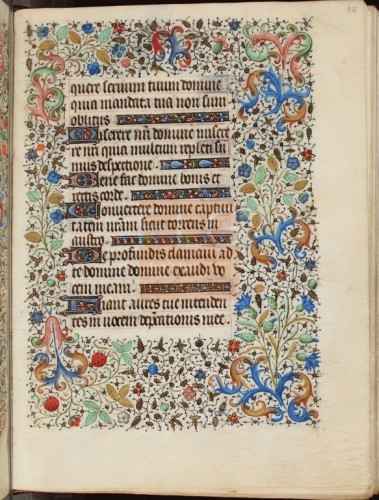 quere servum tuum domine
quia mandata tua non sum
oblitus
Miserere nr̄i domine misere
re nr̄i quia multum repleti su
mus despectione.
Bene fac domine bonis et
rectis corde.
Convertere domine captivi
tatem nr̄am sicut torrens in
austro.
De profundis clamavi ad
te domine domine exaudi vo
cem meam.
Fiant aures tue intenden
tes in vocem dep̄cationis mee.